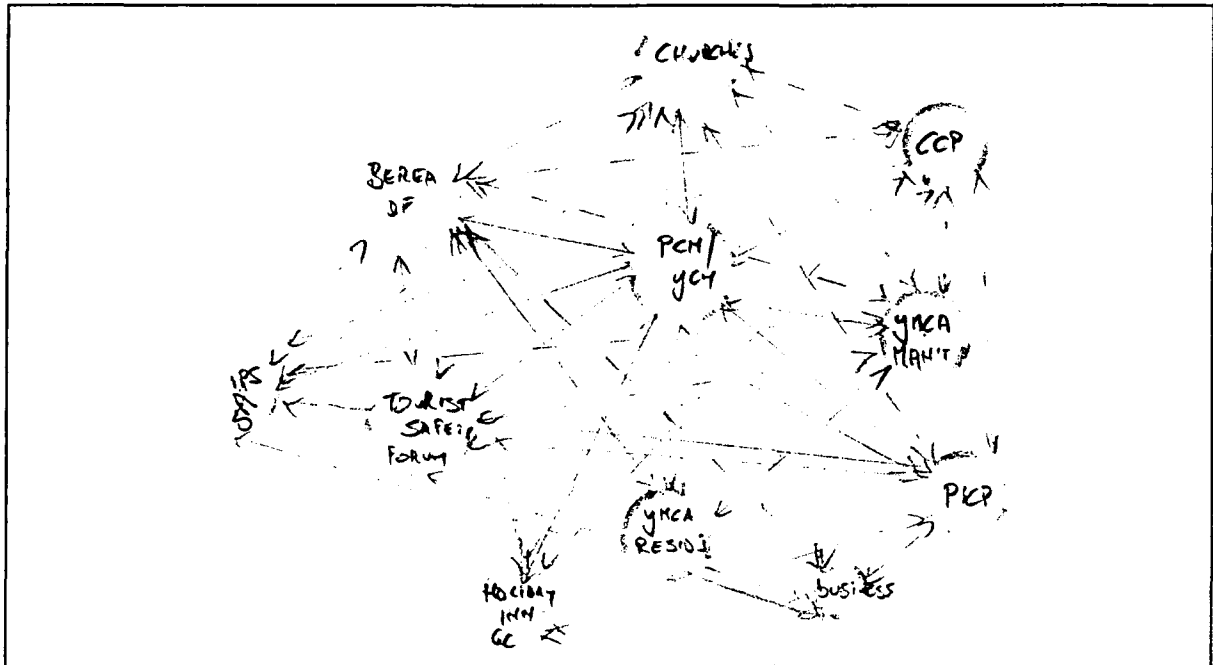 CHURCHES
CCP
BEREA
DF
PCM/
YCM
YMCA
MAN'T
TOURIST
SAFE
FORUM
PICP
YMCA
RESID
business
HOLIDAY
INN
GC